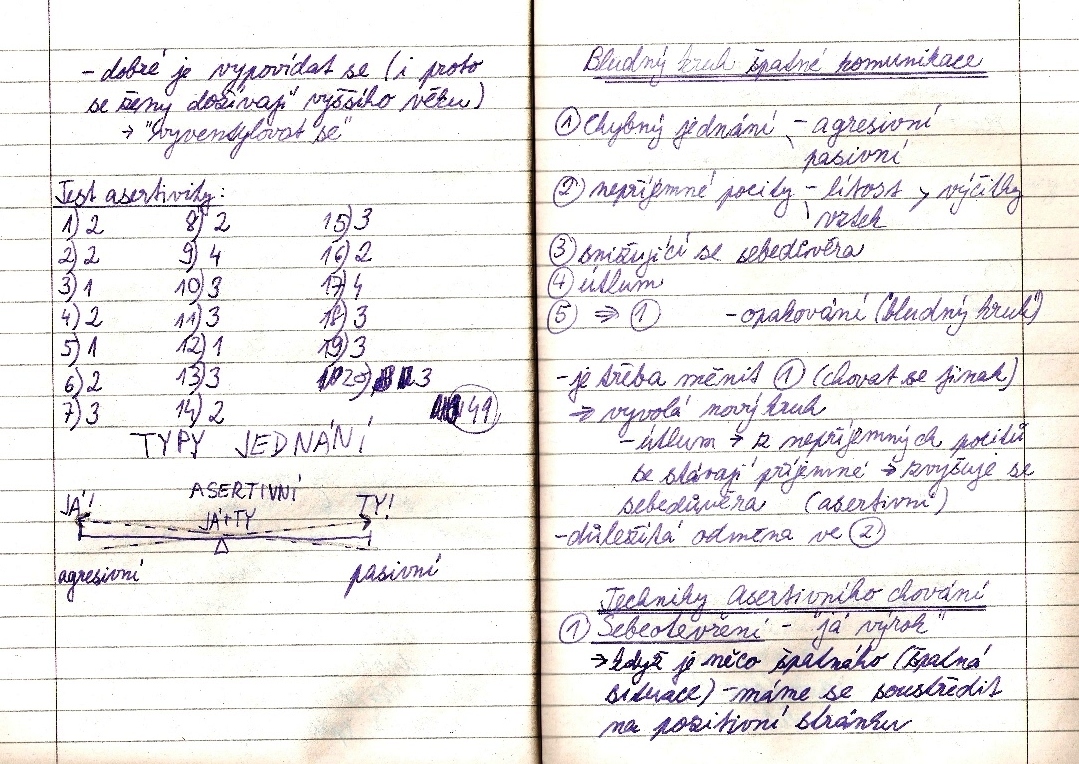 - dobré je vypovídat se (i proto
se ženy dožívají vyššího věku)
→ "vyventylovat se"
Test asertivity:
1) 2 8) 2 15) 3
2) 2 9) 4 16) 2
3) 1 10) 3 17) 4
4) 2 11) 3 18) 3
5) 1 12) 1 19) 3
6) 2 13) 3 20) 3
7) 3 14) 2 49
TYPY JEDNÁNÍ
ASERTIVNÍ
JÁ! JÁ+TY TY!
agresivní pasivní
Bludný kruh špatné komunikace
① Chybný jednání - agresivní
pasivní
② nepříjemné pocity - lítost > výčitky
vztek
③ snižující se sebedůvěra
④ útlum
⑤ ⇒ ① - opakování (bludný kruh)
- je třeba měnit ① (chovat se jinak)
⇒ vyvolá nový kruh
- útlum → z nepříjemných pocitů
se stávají příjemné → zvyšuje se
sebedůvěra (asertivní)
- důležitá odměna ve ②
Techniky asertivního chování
① Sebeotevření - "já výrok"
→ když je něco špatného (špatná
situace) - máme se soustředit
na pozitivní stránku